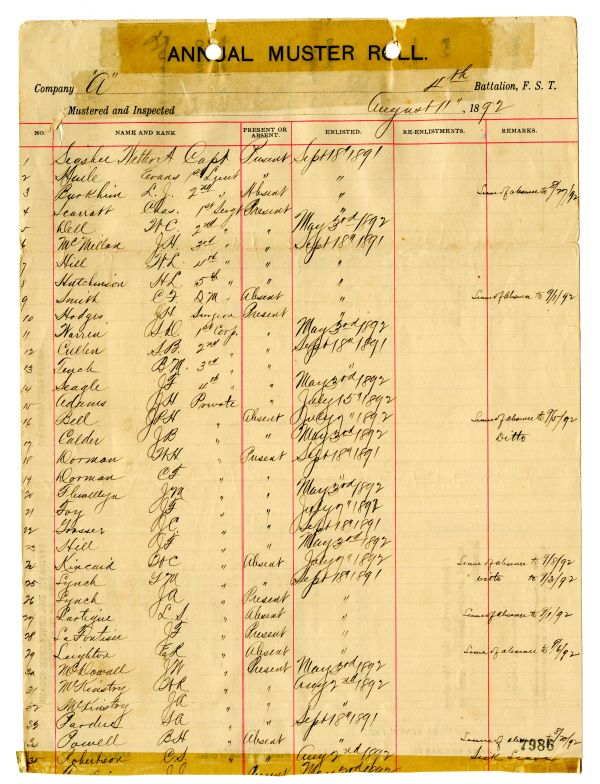 ANNUAL MUSTER ROLL.
Company "A" 4th Battalion, F. S. T.
Mustered and Inspected August 11", 1892
NO. NAME AND RANK PRESENT OR ABSENT. ENLISTED. RE-ENLISTMENTS. REMARKS.
1 A Capt Present Sept 18" 1891
2 Evans 1st Lieut " "
3 L. J. 2nd " Absent " Leave of absence to 8/27/92
4 Scarratt Chas. 1st Sergt Present "
5 Dell W.C. 2nd " " May 3rd 1892
6 McMillan J.H. 3rd " " Sept 18" 1891
7 Hill W.L. 4th " " "
8 Hutchinson H.L. 5th " " "
9 Smith C F Absent " Leave of absence to 9/1/92
10 Hodges J.H. Surgeon Present "
11 Warren 1st Corp. " May 3rd 1892
12 Cullen S.B. 2nd " " Sept 18" 1891
13 B.M. 3rd " " "
14 Seagle J.F. 4th " " May 3rd 1892
15 Adams J H Private " July 15" 1892
16 Bell " Absent July 7" 1892 Leave of absence to 9/5/92
17 Calder J B " " May 3rd 1892 Ditto
18 Dorman " Present Sept 18" 1891
19 Dorman C F " " "
20 Flewellyn " " May 3rd 1892
21 Foy " " July 7" 1892
22 " " Sept 18" 1891
23 Hill " " May 3rd 1892
24 Kincaid " Absent July 7" 1892 Leave of absence to
25 Lynch " " Sept 18" 1891
26 Lynch J A " Present "
27 Lartigue L S " Absent " Leave of absence to 9/1/92
28 LaFontisee J F " Present "
29 Leighton E R " Absent " Leave of absence to 9/6/92
30 McDowall J W " Present May 3rd 1892
31 McKinstry " " Aug 2nd 1892
32 McKinstry J A " " "
33 Pardue " " Sept 18" 1891
Powell B H " Absent " Leave of absence to
7986
Robertson C S " " Aug 2nd 1892 Sick Leave
May 3rd 1892